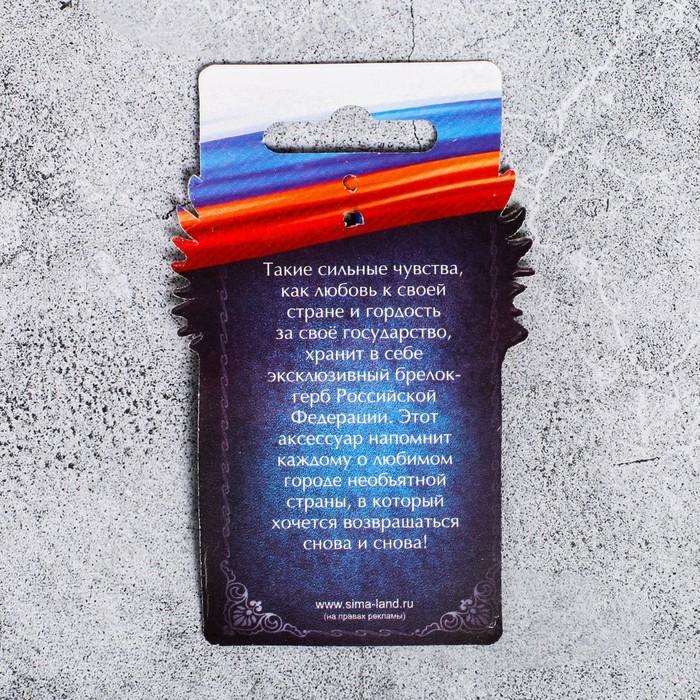 Такие сильные чувства,
как любовь к своей
стране и гордость
за своё государство,
хранит в себе
эксклюзивный брелок-
герб Российской
Федерации. Этот
аксессуар напомнит
каждому о любимом
городе необъятной
страны, в который
хочется возвращаться
снова и снова!
www.sima-land.ru
(на правах рекламы)